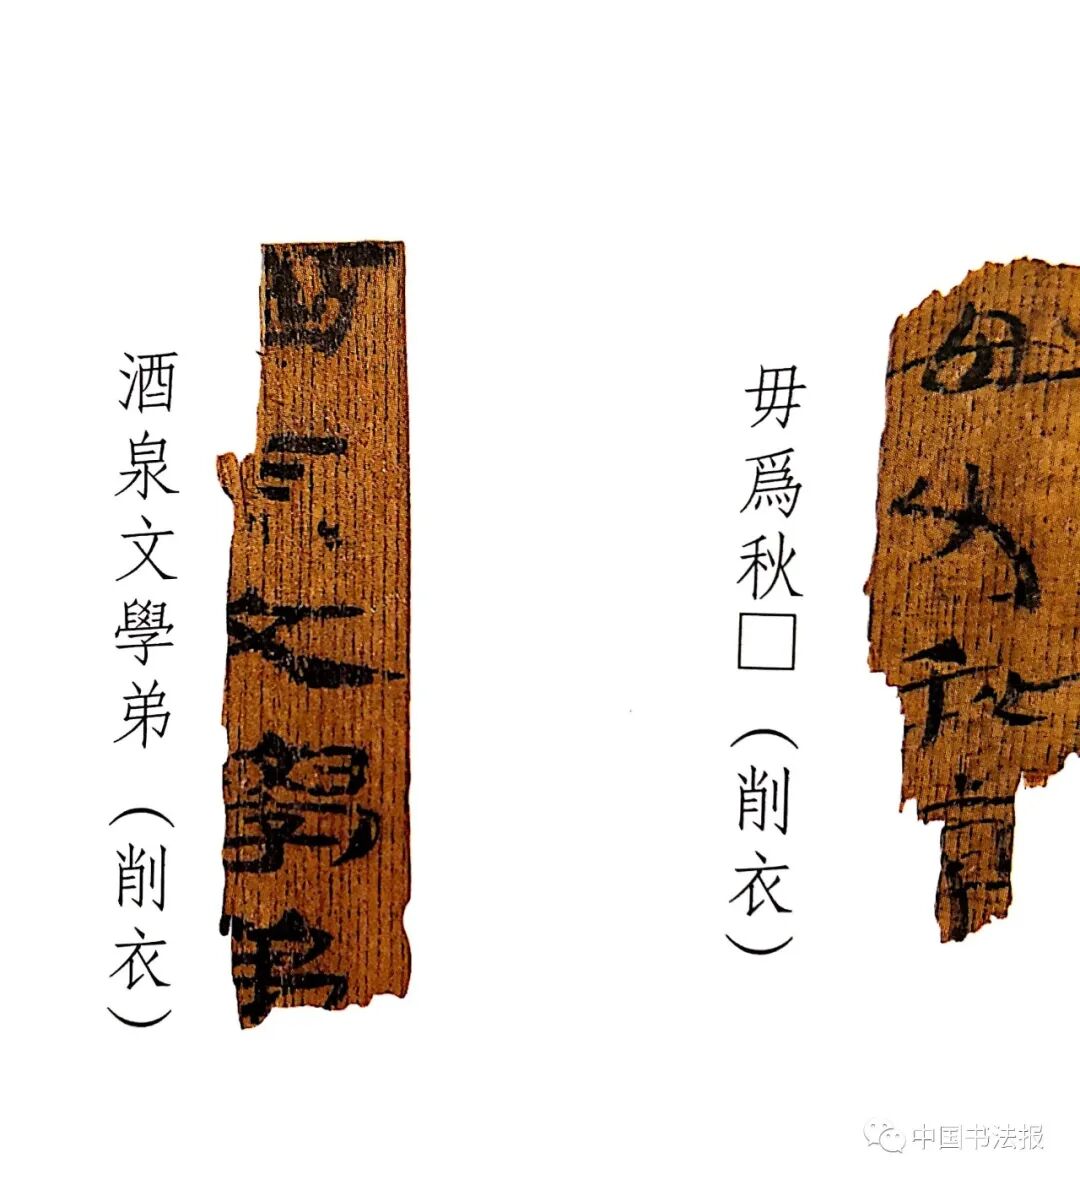 毋爲秋□（削衣）
酒泉文學弟（削衣）
中国书法报